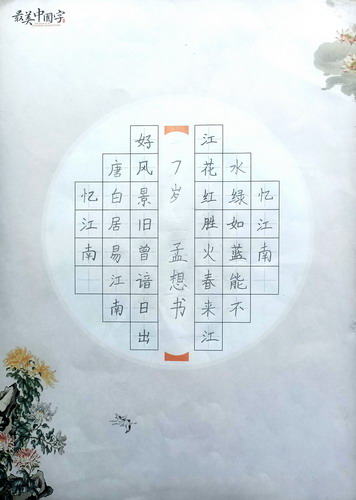 最美中国字
忆江南
唐白居易江南
好风景旧曾谙日出
7岁 孟想书
江花红胜火春来江
水绿如蓝能不
忆江南